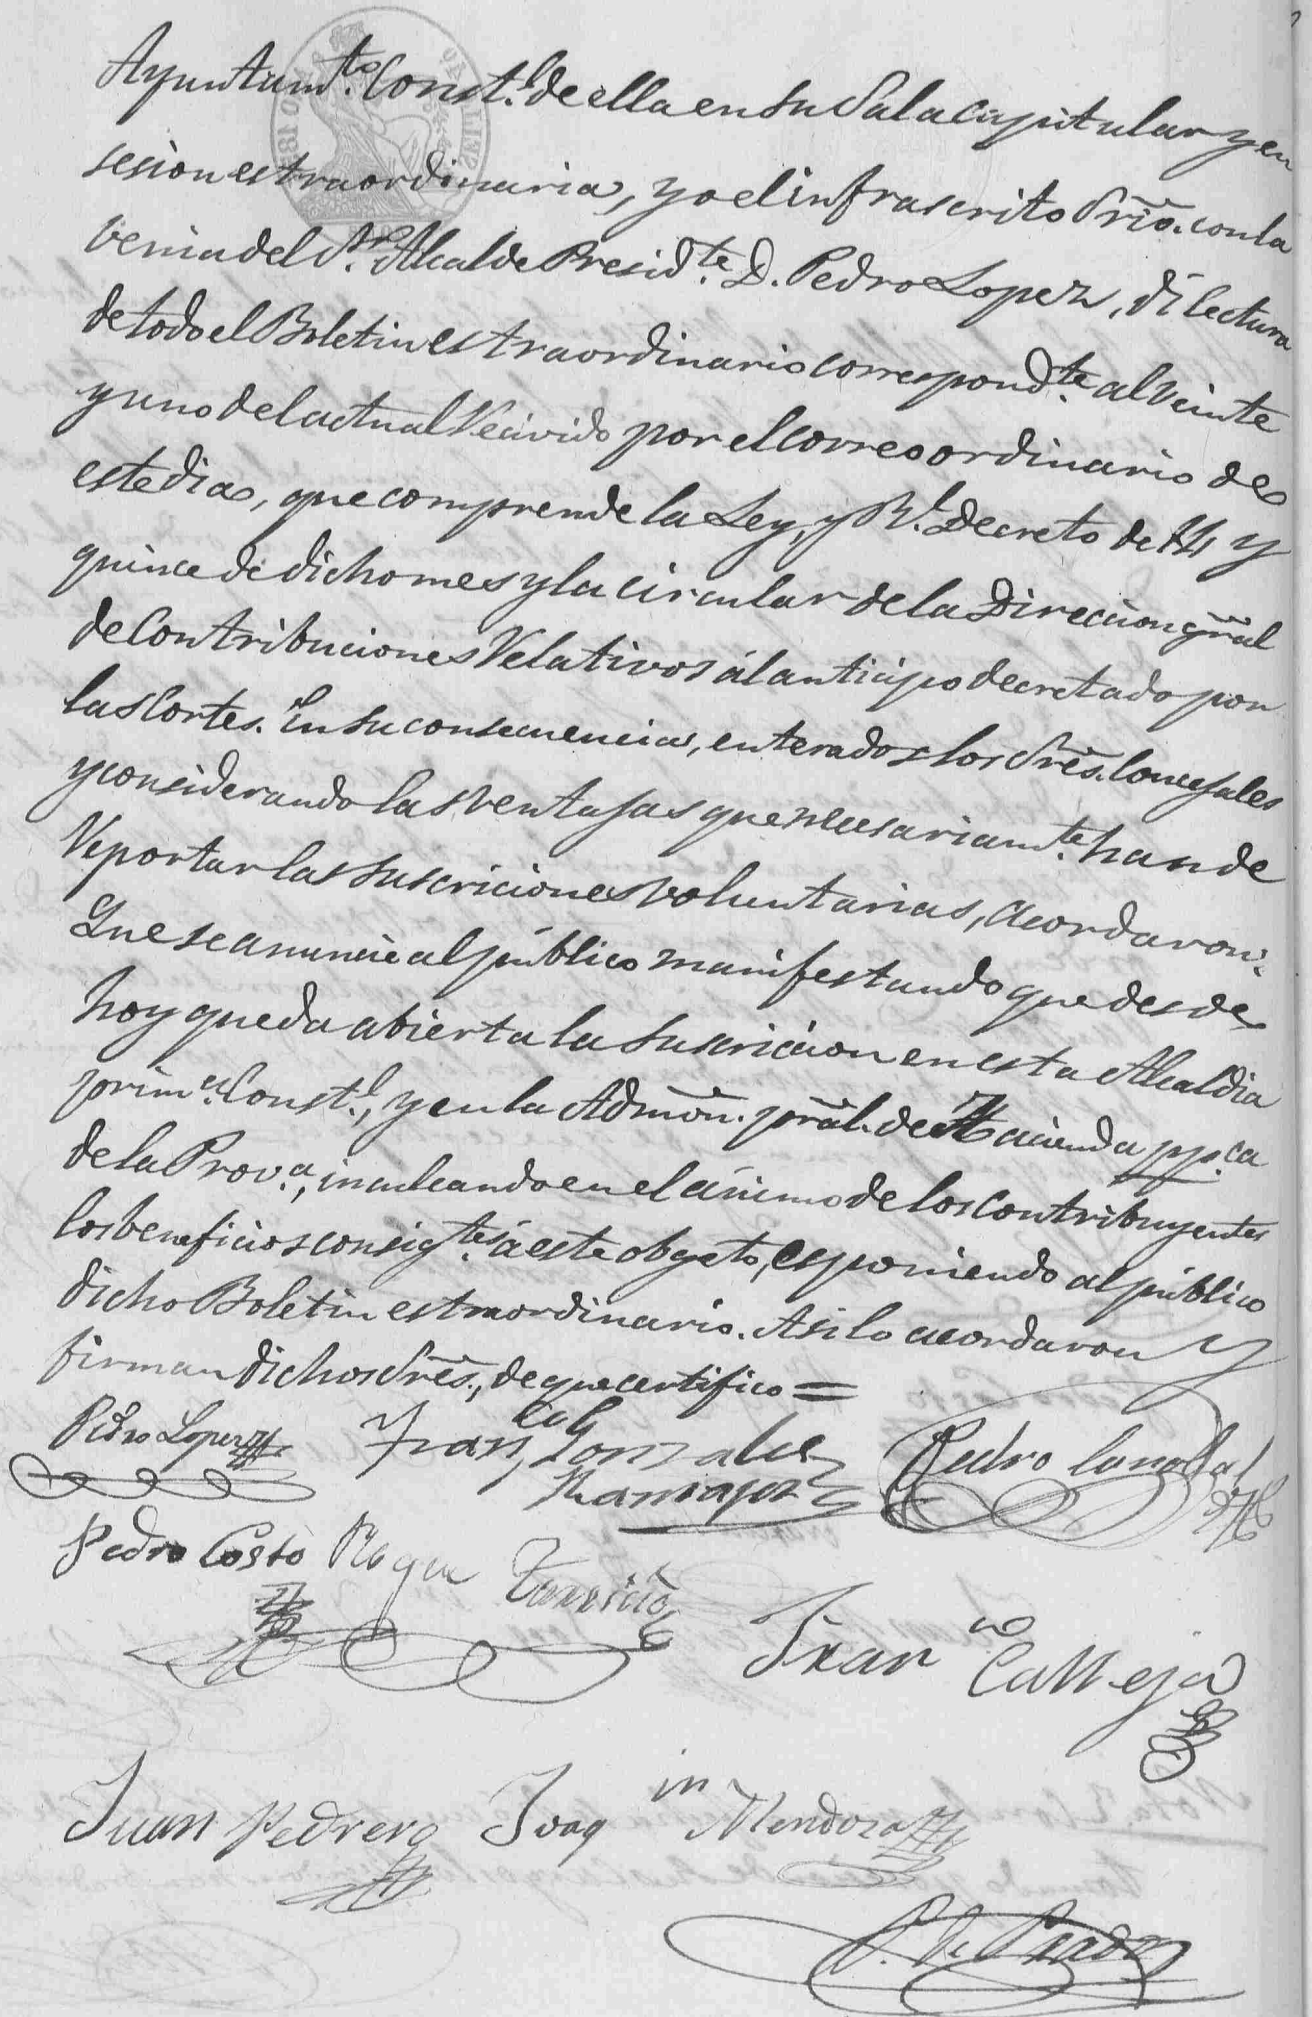 Ayuntamto. Constl. de ella en su Sala capitular y en
sesion estraordinaria, yo el infrascrito Srio. con la
venia del Sr. Alcalde Presidte. D. Pedro Lopez, dí lectura
de todo el Boletin estraordinario correspondte. al veinte
y uno del actual recivido por el correo ordinario de
este dia, que comprende la Ley, y Rl. Decreto de 14 y
quince de dicho mes y la circular de la Direccion gral
de Contribuciones relativos ál anticipo decretado por
las Cortes. En su consecuencia, enterados los Sres. Concejales
y considerando las ventajas que necesariamte. han de
reportar las suscriciones voluntarias, acordaron:
Que se anuncie al público manifestando que desde
hoy queda abierta la suscricion en esta Alcaldia
prima. Constl., y en la Admon. pral. de Hacienda ppca
de la Prova., inculcando en el ánimo de los contribuyentes
los beneficios consigtes. á este obgeto, esponiendo al público
dicho Boletin estraordinario. Asi lo acordaron y
firman dichos Sres., de que certifico =
Pedro Lopez Franco Gonzalez Pedro
Pedro Costo Roque
Franco Calleja
Juan Pedrero Joaqin Mendoza
P. de Prado